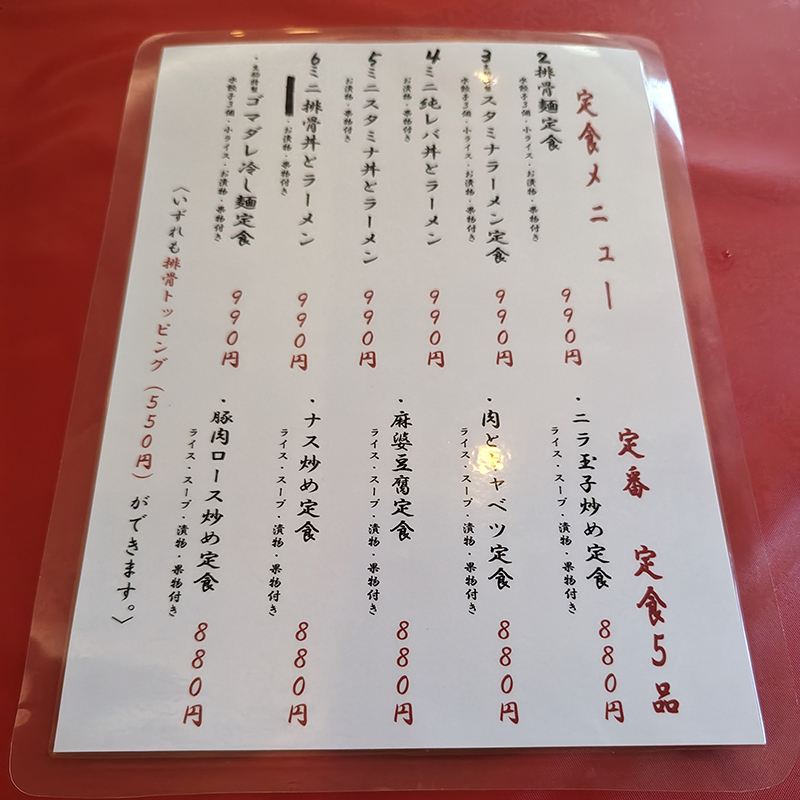 定食メニュー
2排骨麺定食
水餃子3個・小ライス・お漬物・果物付き
990円
3 スタミナラーメン定食
水餃子3個・小ライス・お漬物・果物付き
990円
4ミニ純レバ丼とラーメン
お漬物・果物付き
990円
5ミニスタミナ丼とラーメン
お漬物・果物付き
990円
6ミニ排骨丼とラーメン
・お漬物・果物付き
990円
・ ゴマダレ冷し麺定食
水餃子3個・小ライス・お漬物・果物付き
990円
定番 定食5品
・ニラ玉子炒め定食
ライス・スープ・漬物・果物付き
880円
・肉と ャベツ定食
ライス・スープ・漬物・果物付き
880円
・麻婆豆腐定食
ライス・スープ・漬物・果物付き
880円
・ナス炒め定食
ライス・スープ・漬物・果物付き
880円
・豚肉ロース炒め定食
ライス・スープ・漬物・果物付き
880円
〈いずれも排骨トッピング(550円)ができます。〉